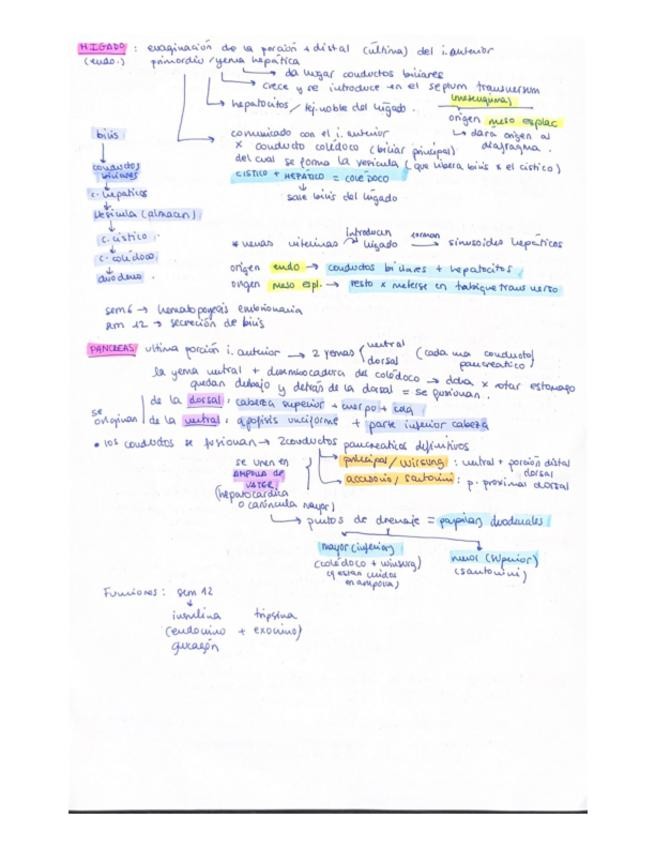 HIGADO : evaginación de la porción + distal (última) del i. anterior
(endo.) primordio / yema hepática
→ da lugar conductos biliares
→ crece y se introduce en el septum transversum
(mesénquima)
→ hepatocitos / tej. noble del hígado.
origen meso esplac
↳ dará origen al
diafragma.
→ comunicado con el i. anterior
x conducto colédoco (biliar principal)
del cual se forma la vesícula (que libera bilis x el cístico)
CÍSTICO + HEPÁTICO = COLÉDOCO
↓
sale bilis del hígado
bilis
↓
conductos
biliares
↓
c. hepáticos
↓
vesícula (almacén)
↓
c. cístico
↓
c. colédoco
↓
duodeno.
* venas vitelinas introducen → hígado forman → sinusoides hepáticos
origen endo → conductos biliares + hepatocitos
origen meso espl. → resto x meterse en tabique transverso
sem 6 → hematopoyesis embrionaria
sem 12 → secreción de bilis
PANCREAS ultima porción i. anterior → 2 yemas { ventral
dorsal (cada una conducto
pancreático)
la yema ventral + desembocadura del colédoco → x rotar estomago
quedan debajo y detrás de la dorsal = se fusionan.
se
originan
de la dorsal : cabeza superior + cuerpo + cola
de la ventral : apófisis unciforme + parte inferior cabeza
• los conductos se fusionan → 2 conductos pancreáticos definitivos
→ principal / Wirsung : ventral + porción distal
dorsal
→ accesorio / santorini : p. proximal dorsal
se unen en
AMPOLLA DE
VATER
(hepatocárdica
o carúncula mayor)
→ puntos de drenaje = papilas duodenales
mayor (inferior)
(colédoco + wirsung)
(q están unidos
en ampolla)
menor (superior)
(santorini)
Funciones : sem 12
↓
insulina tripsina
(endocrino + exocrino)
glucagón